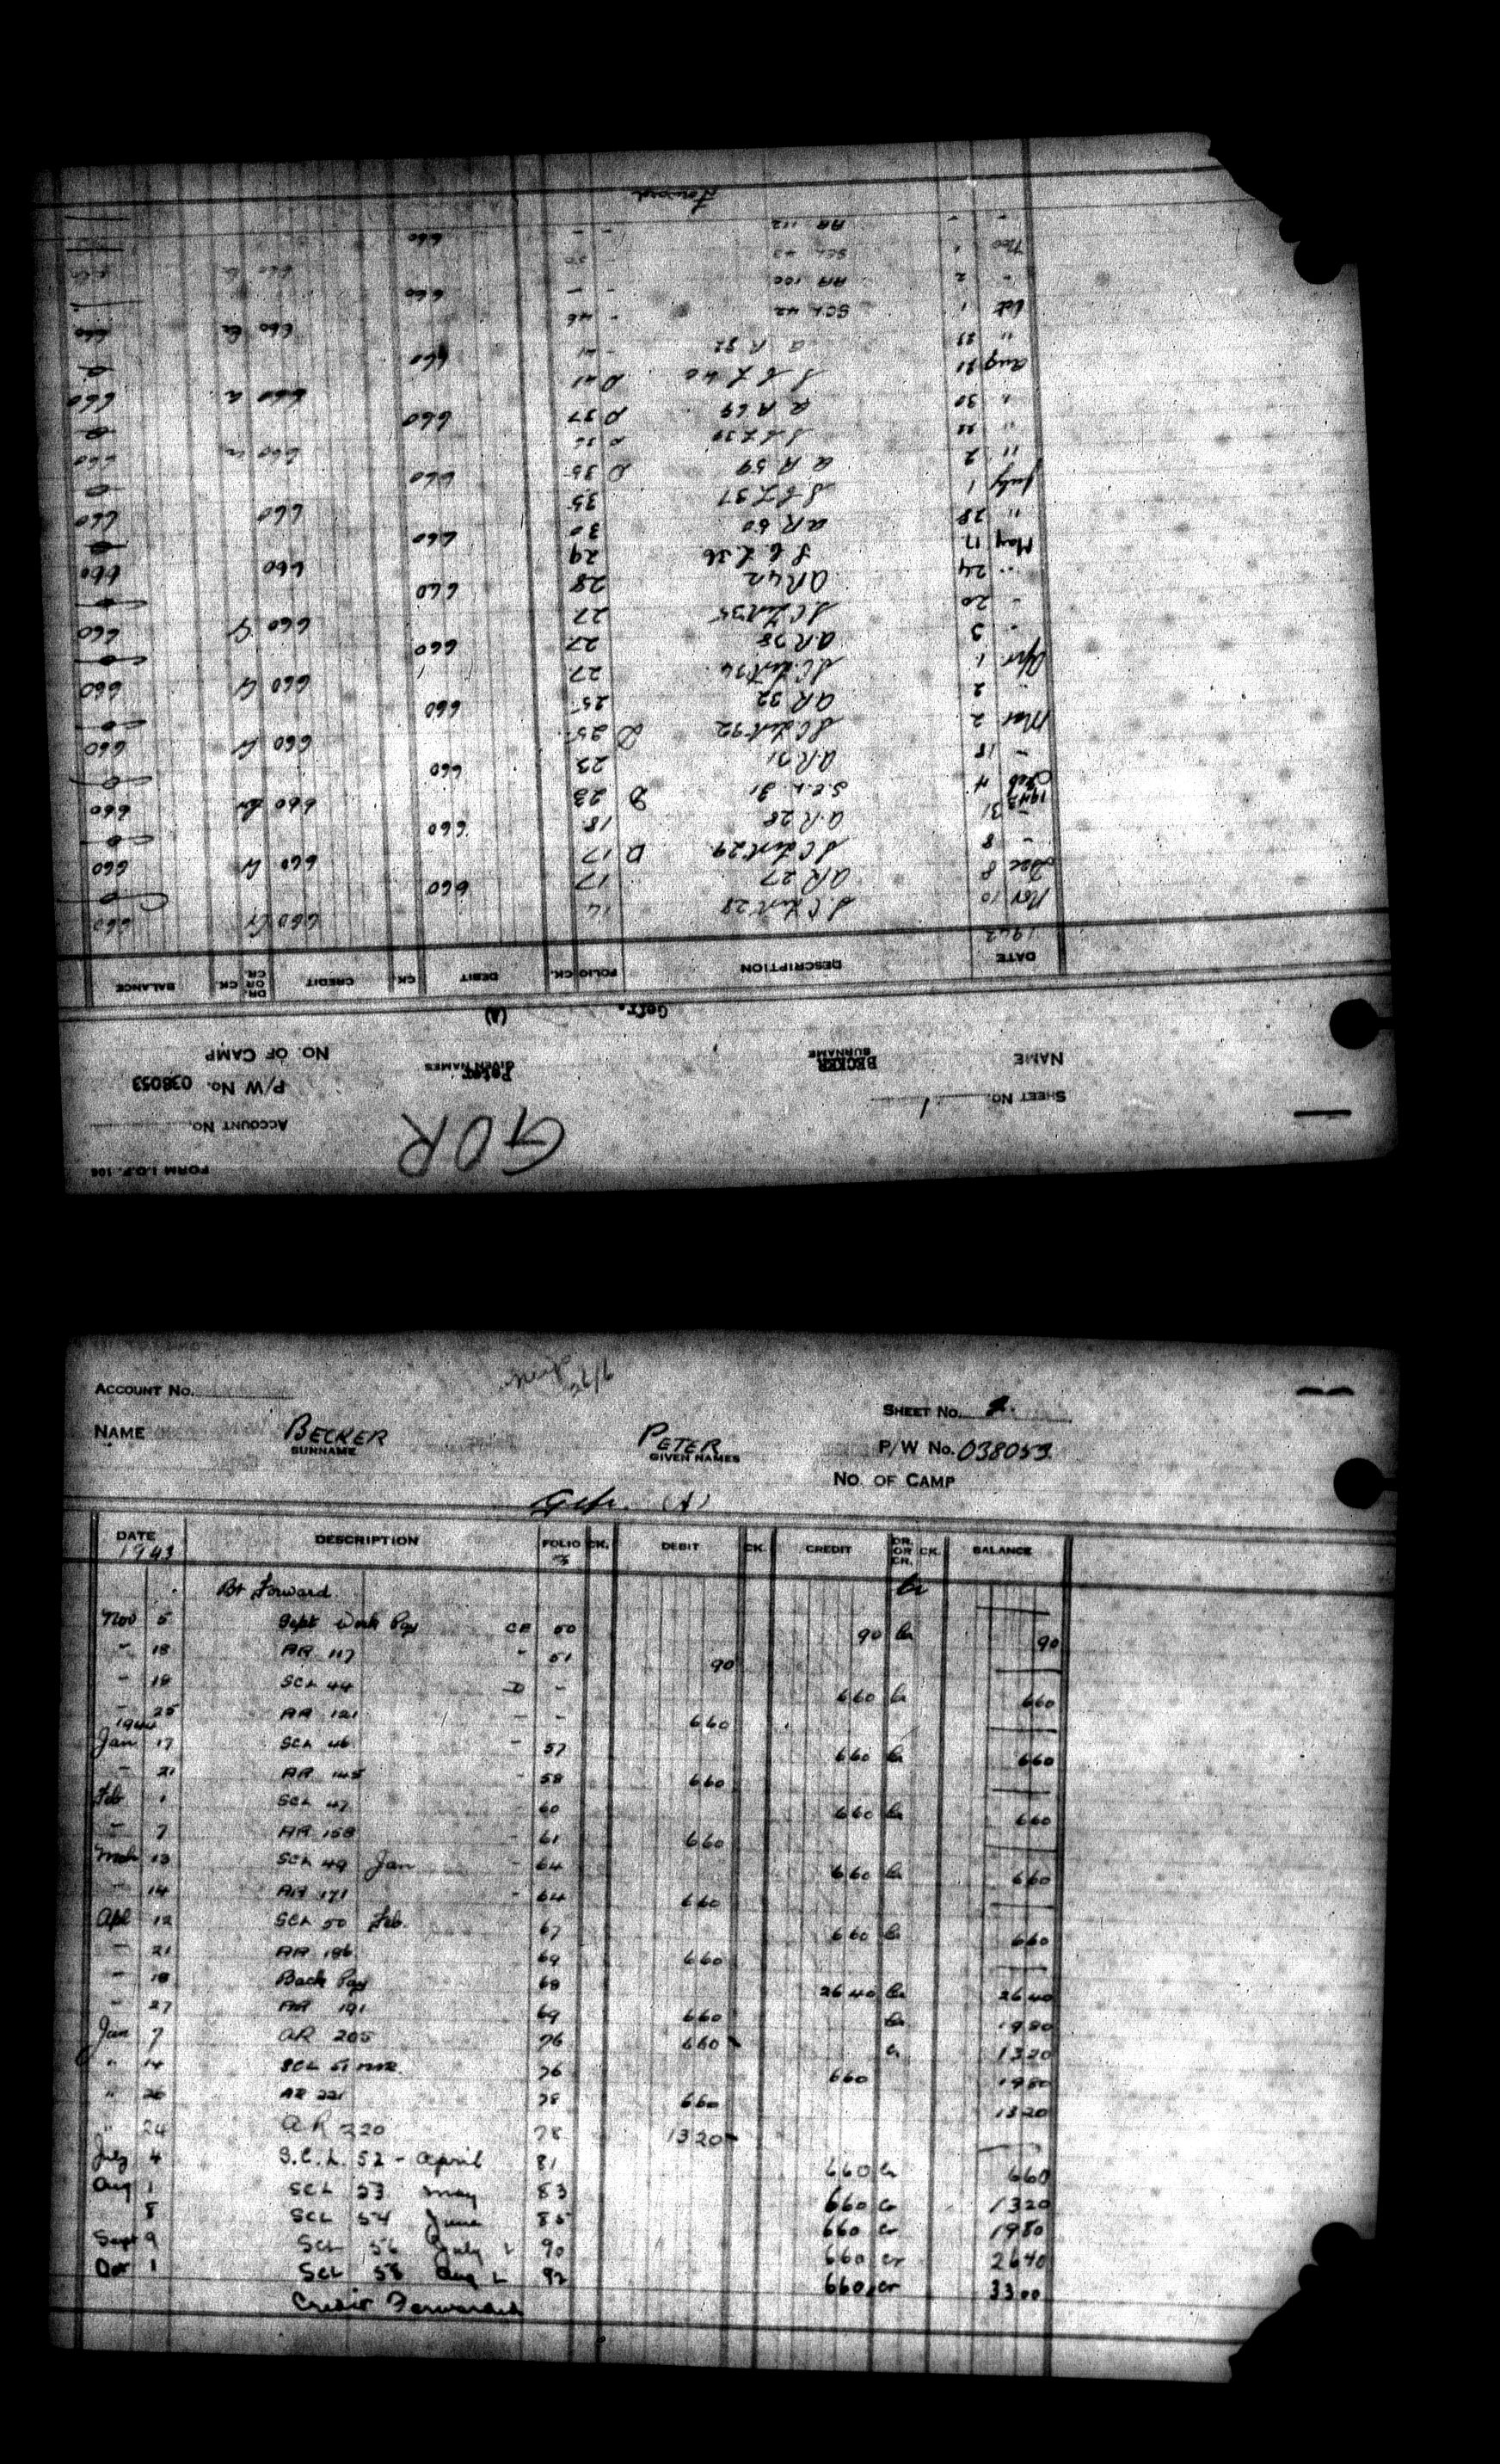 FORM I.O.P. 106
ACCOUNT NO.
GOR
SHEET NO. 1
P/W No. 038053
NAME BECKER Peter
SURNAME GIVEN NAMES
NO. OF CAMP
Gefr. (A)
DATE DESCRIPTION FOLIO CK. DEBIT CK. CREDIT DR. OR CR. CK. BALANCE
1942
Nov 10 S.C. List 28 14 660 Cr 660
Dec 8 AR 27 17 660 0
- 8 S C List 29 D 17 660 Cr 660
- 31 A.R 28 18 660 0
1943
Feb 4 S.C.L 31 D 23 660 Cr 660
- 18 AR 31 23 660 0
Mar 2 S C List 32 D 25 660 Cr 660
- 2 AR 32 25 660 0
Apr 1 S C List 34 27 660 Cr 660
- 5 AR 38 27 660 0
- 20 S C List 35 27 660 Cr 660
- 24 AR 42 28 660 0
May 17 S C L 36 29 660 660
" 28 AR 50 30 660 0
July 1 S C L 37 35 660 660
" 2 AR 59 D 35 660 0
" 22 S C L 39 D 36 660 Cr 660
" 30 AR 69 D 37 660 0
Aug 21 S C L 40 D 41 660 Cr 660
" 23 AR 82 - 41 660 0
Oct 1 SCL 42 - 46 660 Cr 660
- 2 AR 100 - - 660
Nov 1 SCL 43 - 50 660 Cr 660
- - AR 112 - - 660
Forward
ACCOUNT NO.
SHEET NO. 2
NAME BECKER PETER
SURNAME GIVEN NAMES
P/W No. 038053
NO. OF CAMP
Gefr. (A)
DATE DESCRIPTION FOLIO CK. DEBIT CK. CREDIT DR. OR CR. CK. BALANCE
1943
Bt Forward Cr
Nov 5 Sept Work Pay CR 50 90 Cr 90
- 18 AR 117 - 51 90
- 19 SCL 44 D - 660 Cr 660
- 25 AR 121 - - 660
1944
Jan 17 SCL 46 - 57 660 Cr 660
- 21 AR 145 - 58 660
Feb 1 SCL 47 - 60 660 Cr 660
- 7 AR 158 - 61 660
Mch 13 SCL 49 Jan - 64 660 Cr 660
- 14 AR 171 - 64 660
Apl 12 SCL 50 Feb. 67 660 Cr 660
- 21 AR 186 69 660
- 18 Back Pay 68 2640 Cr 2640
- 27 AR 191 69 660 Cr 1980
Jun 7 AR 205 76 660 Cr 1320
" 14 SCL 51 mar. 76 660 1980
" 20 AR 221 78 660 1320
" 24 AR 220 78 1320
July 4 S.C.L. 52 - April 81 660 Cr 660
Aug 1 SCL 53 May 83 660 Cr 1320
8 SCL 54 June 85 660 Cr 1980
Sept 9 SCL 56 July L 90 660 Cr 2640
Oct 1 SCL 58 Aug L 92 660 Cr 3300
Credit Forwarded